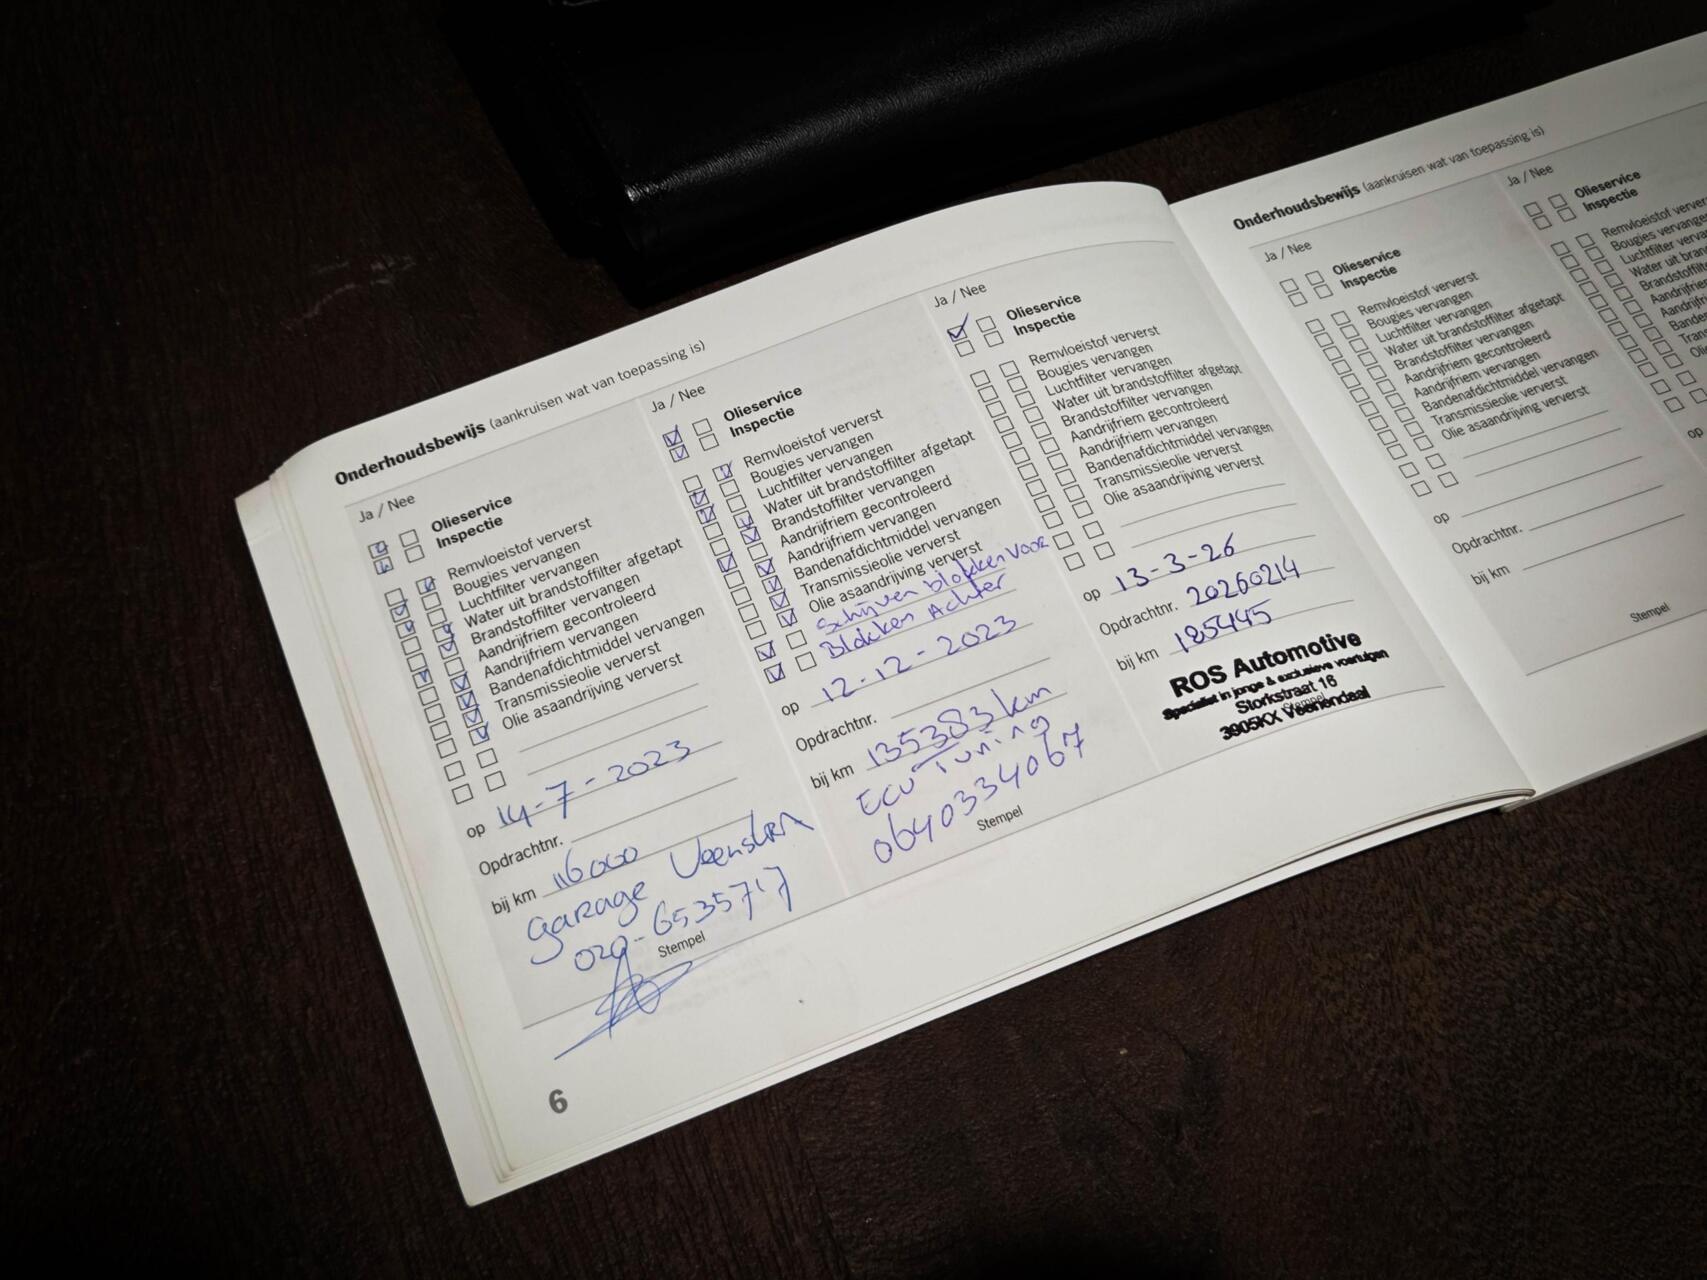 Onderhoudsbewijs (aankruisen wat van toepassing is)
Ja / Nee
Olieservice
Inspectie
Remvloeistof ververst
Bougies vervangen
Luchtfilter vervangen
Water uit brandstoffilter afgetapt
Brandstoffilter vervangen
Aandrijfriem gecontroleerd
Aandrijfriem vervangen
Bandenafdichtmiddel vervangen
Transmissieolie ververst
Olie asaandrijving ververst
op 14-7-2023
Opdrachtnr.
bij km 116000
Garage Veenstra
020-6535717
Stempel
6
Ja / Nee
Olieservice
Inspectie
Remvloeistof ververst
Bougies vervangen
Luchtfilter vervangen
Water uit brandstoffilter afgetapt
Brandstoffilter vervangen
Aandrijfriem gecontroleerd
Aandrijfriem vervangen
Bandenafdichtmiddel vervangen
Transmissieolie ververst
Olie asaandrijving ververst
Schijven blokken Voor
Blokken Achter
op 12-12-2023
Opdrachtnr.
bij km 135383 km
ECU Tuning
0640334067
Stempel
Ja / Nee
Olieservice
Inspectie
Remvloeistof ververst
Bougies vervangen
Luchtfilter vervangen
Water uit brandstoffilter afgetapt
Brandstoffilter vervangen
Aandrijfriem gecontroleerd
Aandrijfriem vervangen
Bandenafdichtmiddel vervangen
Transmissieolie ververst
Olie asaandrijving ververst
op 13-3-26
Opdrachtnr. 20260214
bij km 185445
ROS Automotive
Specialist in jonge & exclusieve voertuigen
Storkstraat 16
Stempel
3905KX Veenendaal
Onderhoudsbewijs (aankruisen wat van toepassing is)
Ja / Nee
Olieservice
Inspectie
Remvloeistof ververst
Bougies vervangen
Luchtfilter vervangen
Water uit brandstoffilter afgetapt
Brandstoffilter vervangen
Aandrijfriem gecontroleerd
Aandrijfriem vervangen
Bandenafdichtmiddel vervangen
Transmissieolie ververst
Olie asaandrijving ververst
op
Opdrachtnr.
bij km
Stempel
Ja / Nee
Olieservice
Inspectie
Remvloeistof
Bougies
Luchtfilter
Water uit
op